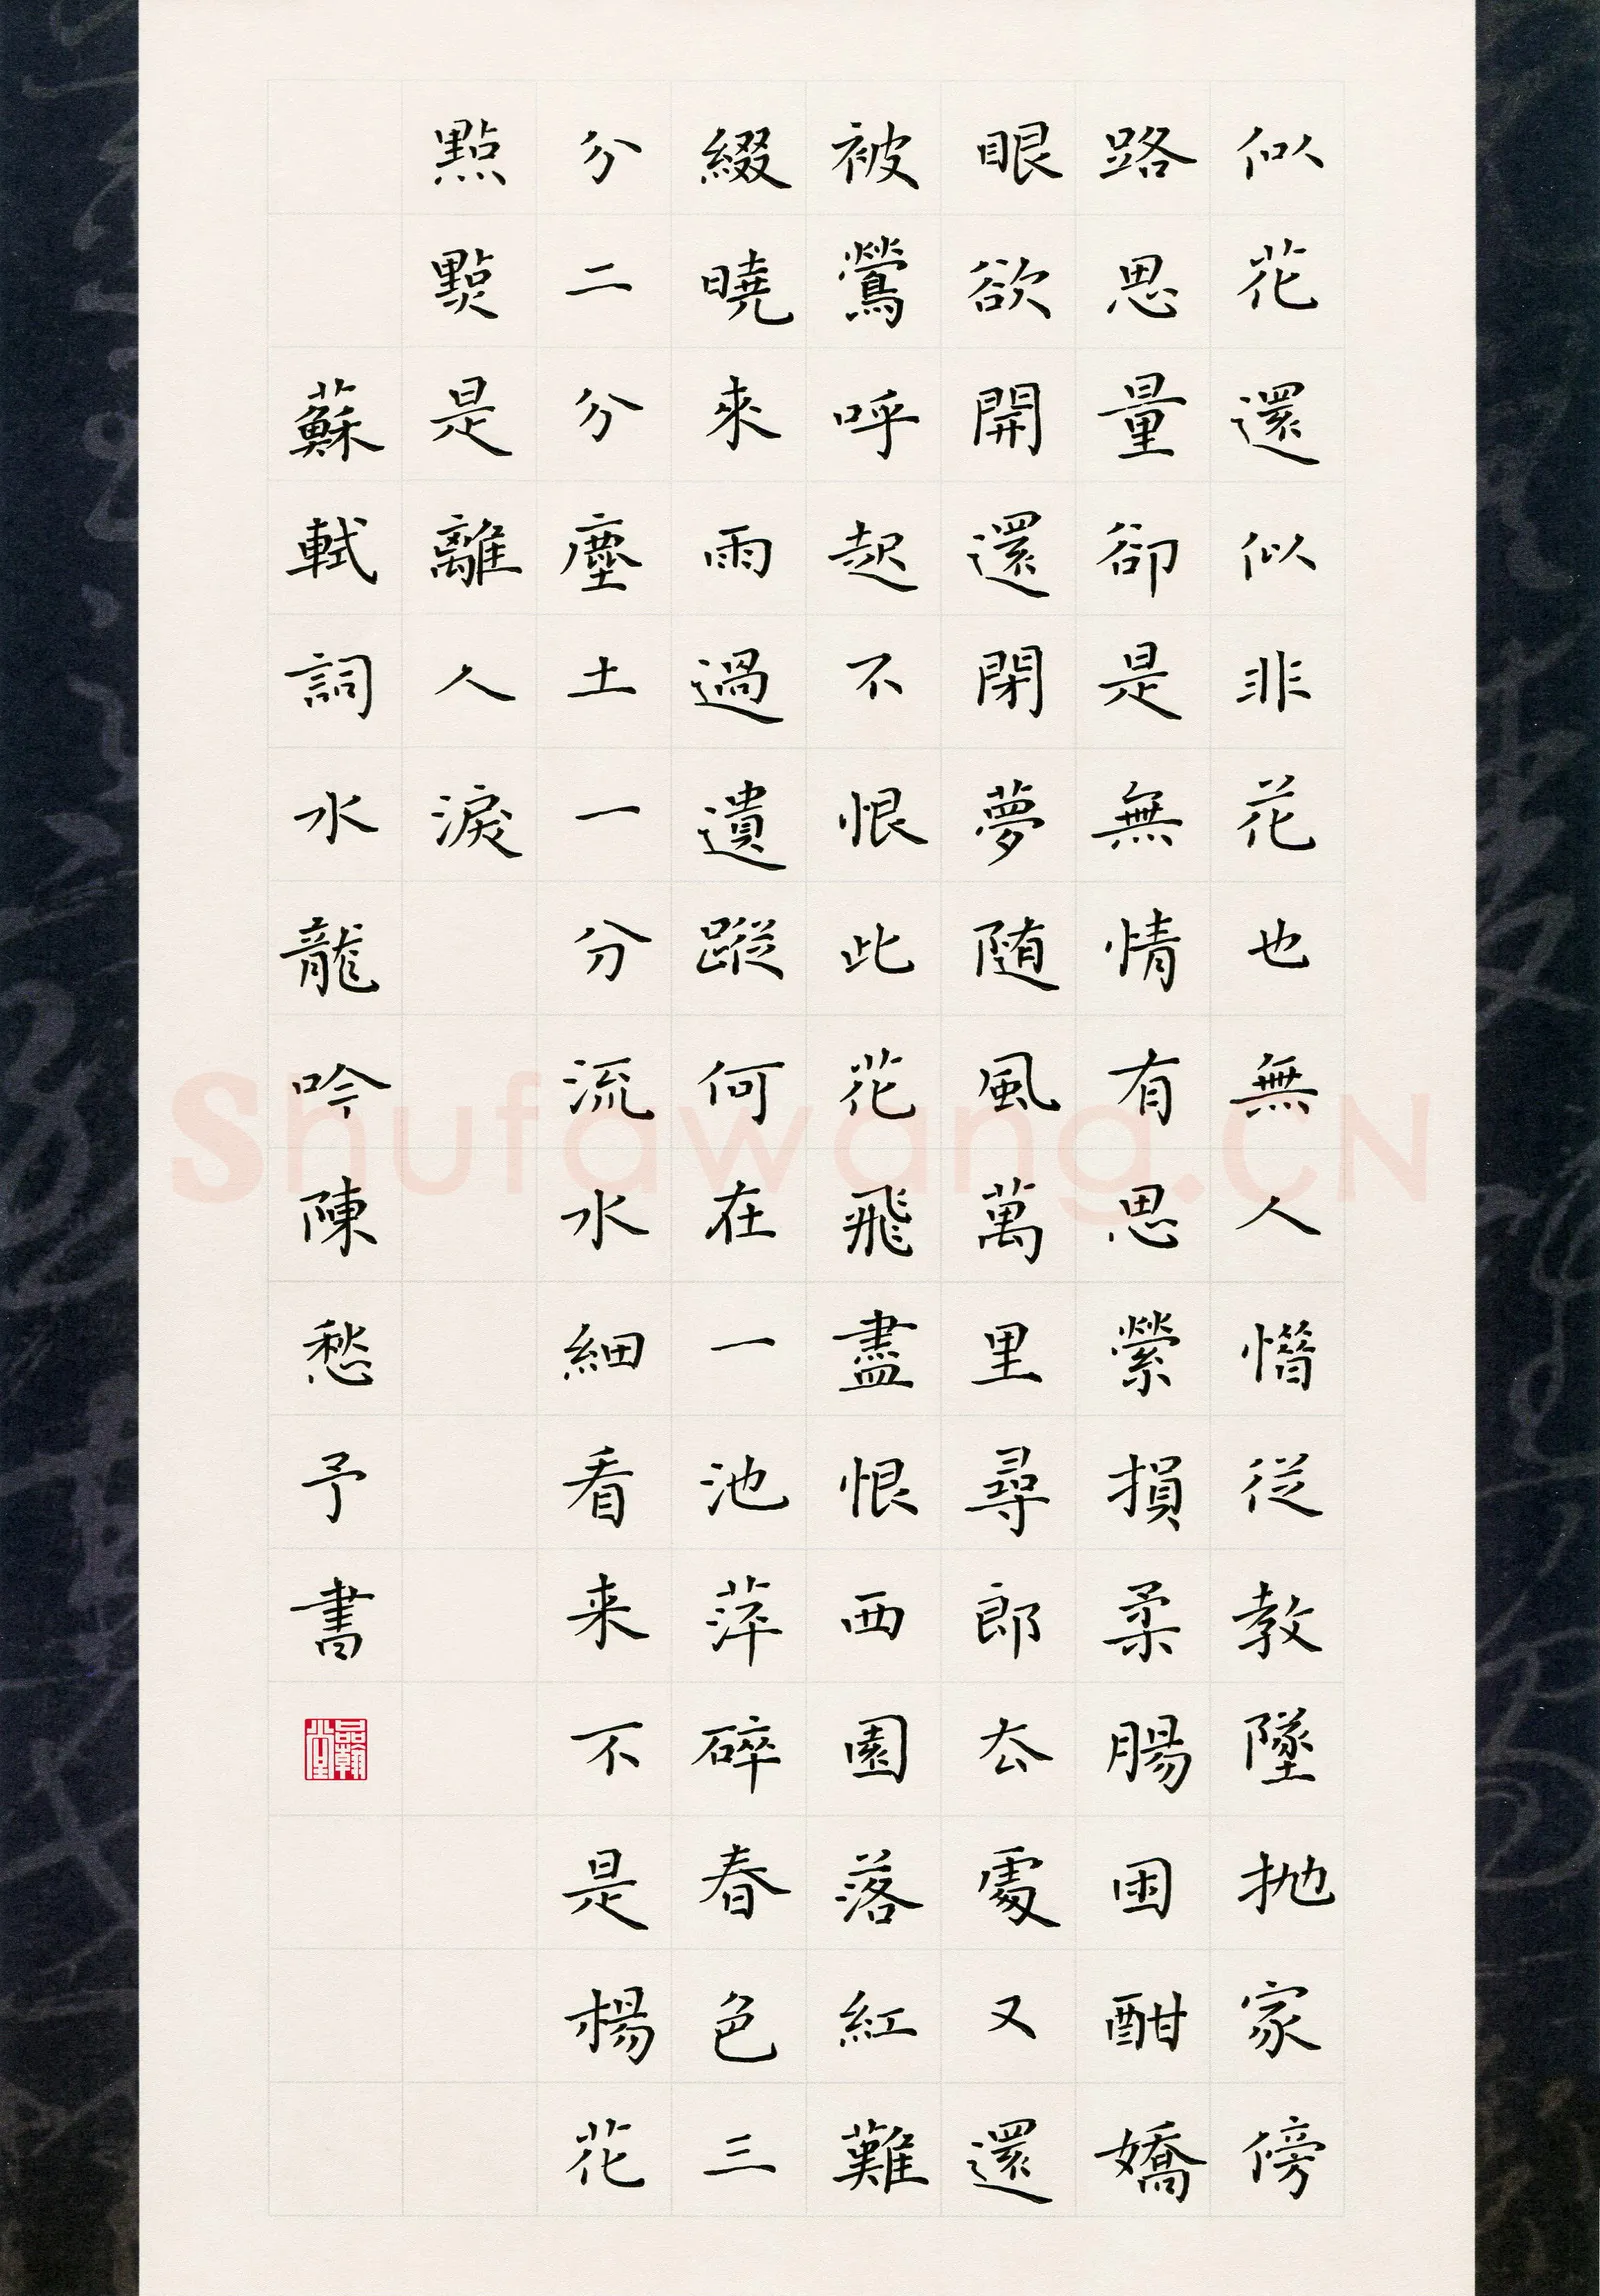 似花還似非花也無人惜從教墜抛家傍
路思量卻是無情有思縈損柔腸困酣嬌
眼欲開還閉夢随風萬里尋郎去處又還
被鶯呼起不恨此花飛盡恨西園落紅難
綴曉來雨過遺蹤何在一池萍碎春色三
分二分塵土一分流水細看来不是楊花
點點是離人淚
蘇軾詞水龍吟陳愁予書
品翰堂
Shufawang.CN